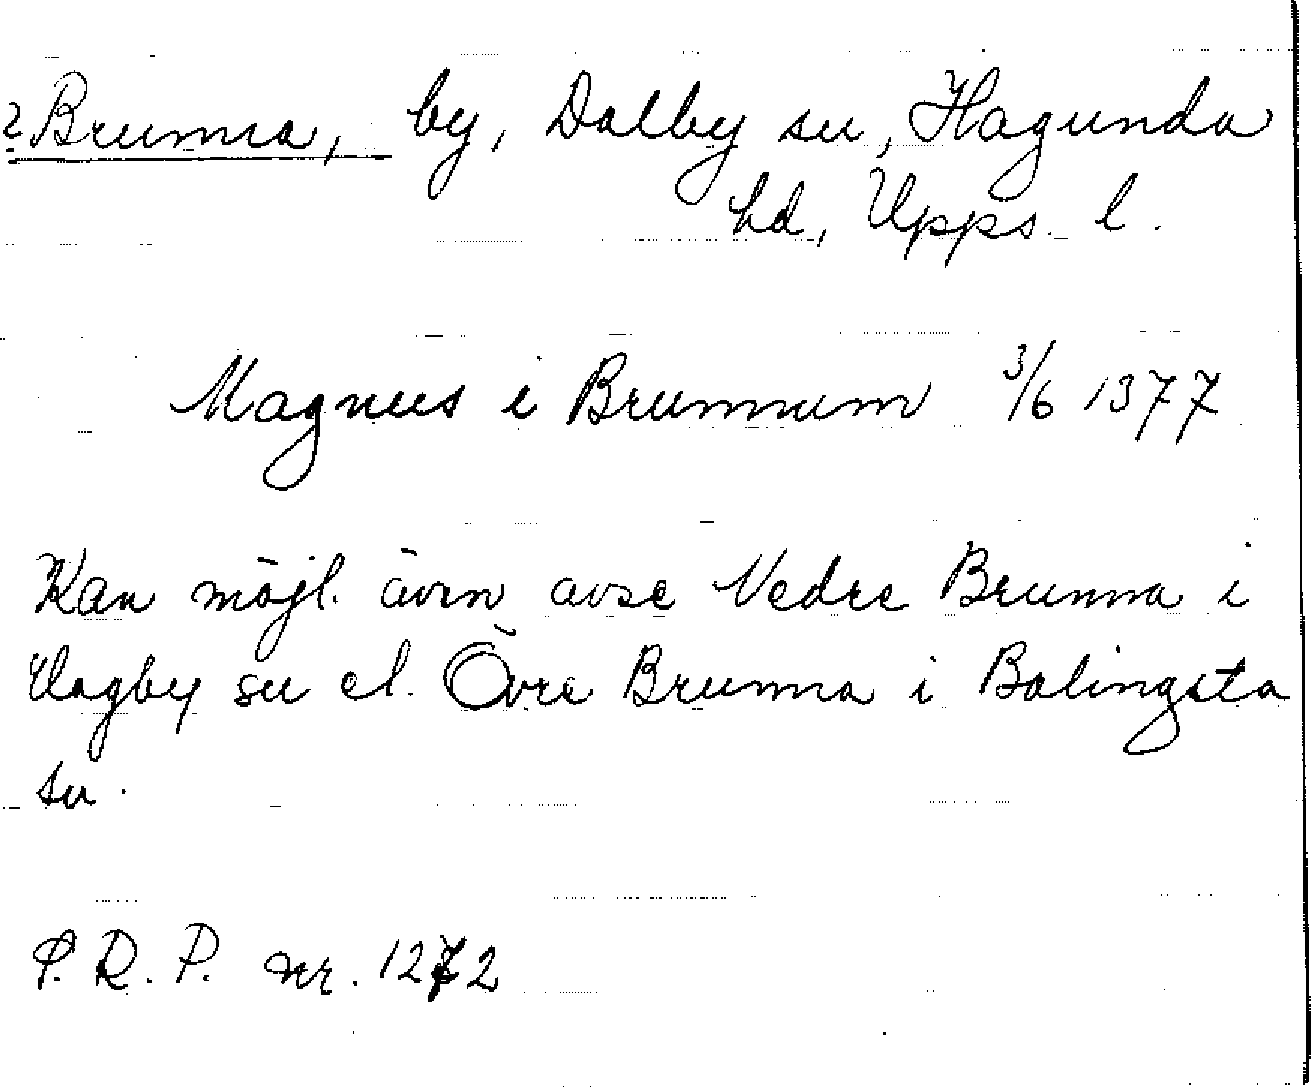 ? Brunna, by, Dalby sn, Hagunda
hd, Upps. l.
Magnus i Brunnum 3/6 1377
Kan möjl. även avse Nedre Brunna i
Vagby sn el. Övre Brunna i Balingsta
sn.
P. R. P. nr. 1272